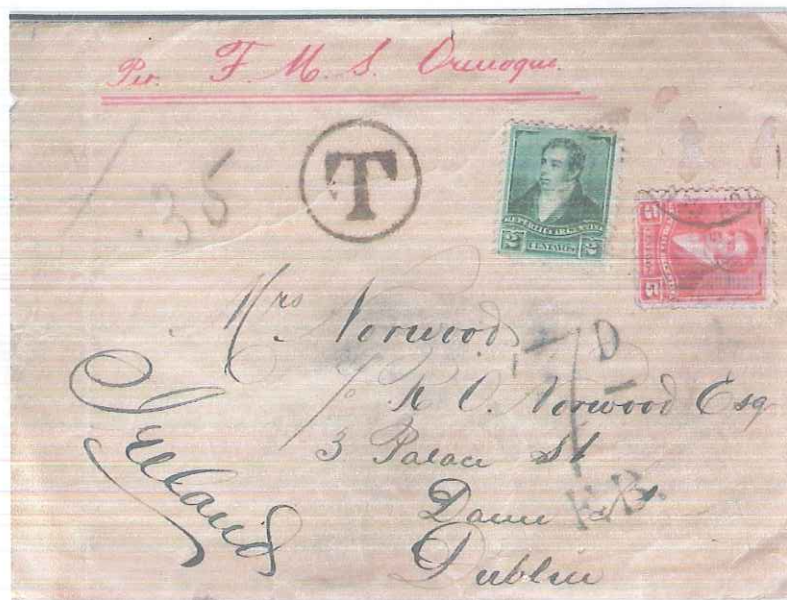 Per. F. M. S. Orenoque.
T
35
REPUBLICA ARGENTINA
2 CENTAVOS 2
5 5
Mrs Norwood
D
c/o R C. Norwood Esq
3 Palace St
Dame St
Dublin
Ireland